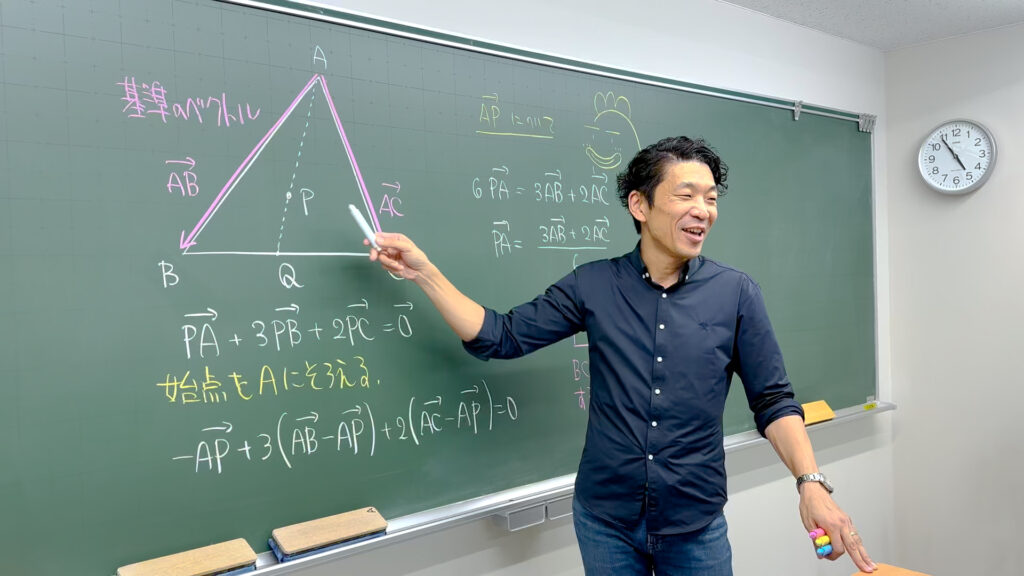 A
基準のベクトル
→AB
→AC
P
B
Q
→PA + 3→PB + 2→PC = →0
始点をAにそろえる.
-→AP + 3(→AB - →AP) + 2(→AC - →AP) = 0
→AP について
6→PA = 3→AB + 2→AC
→PA = 3→AB + 2→AC
BC
12
1
2
3
4
5
6
7
8
9
10
11